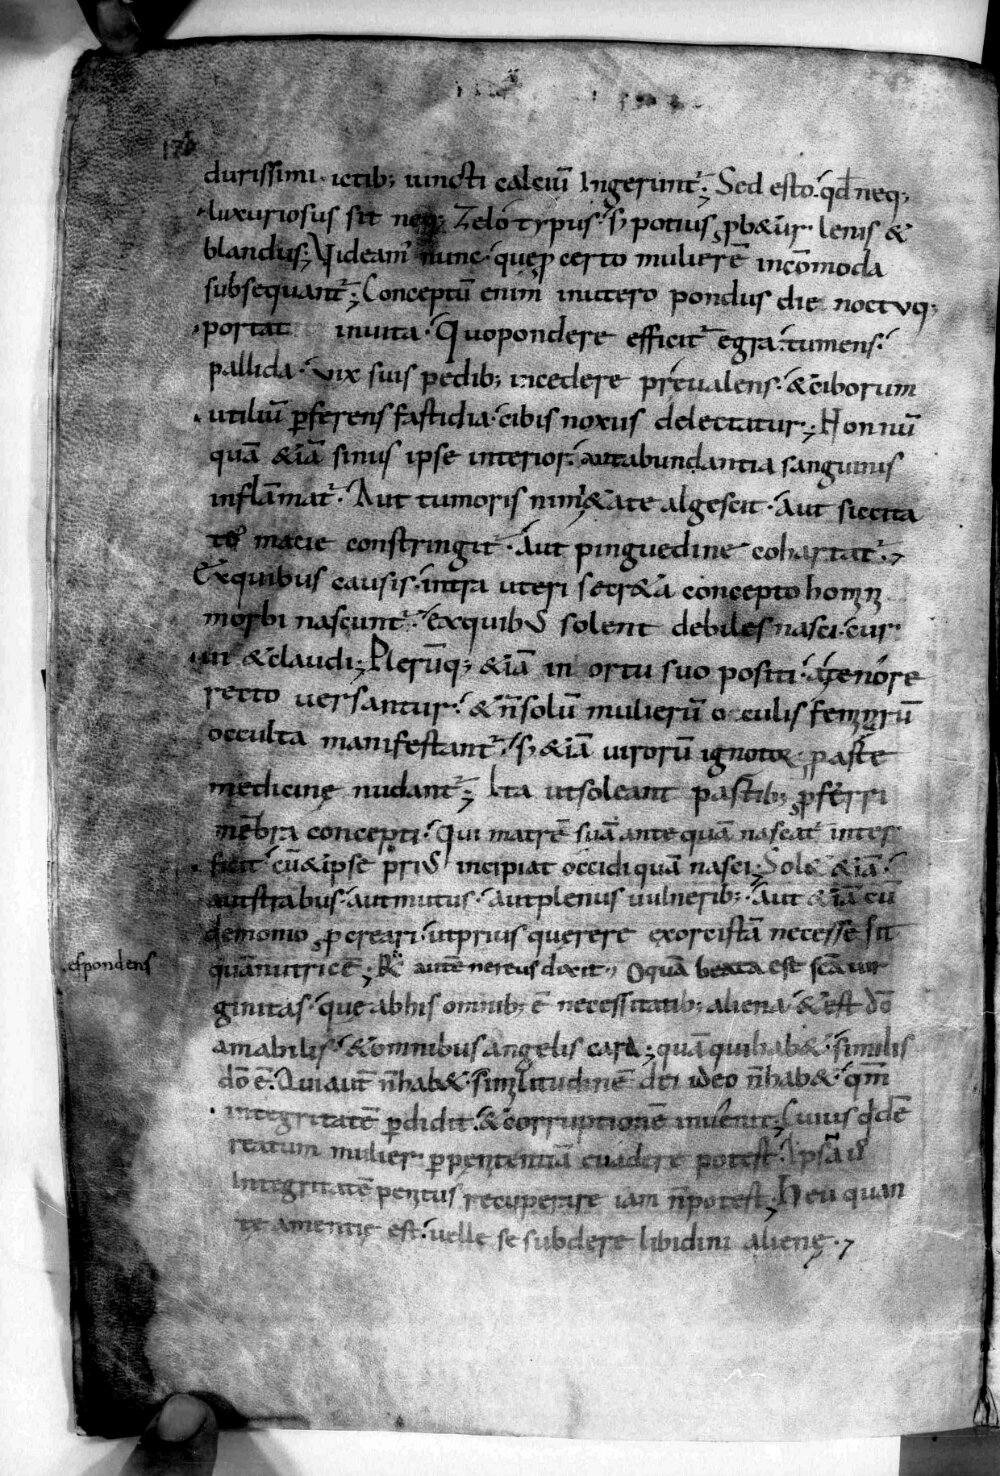 176
durissimi. ictib; iuncti calciū Ingerunt̄; Sed esto. qd̄ neq;
luxuriosus sit neq; Zelotypus. s; potius ꝓb&ur. lenis &
blandus; Videam̄ nunc. que ꝓ certo mulierē incōmoda
subsequant̄; Conceptū enim inutero pondus die noctuq;
portat inuita. Quopondere efficit̄ ęgra. tumens.
pallida. vix suis pedib; incedere pręualens. &ciborum
utiliū ꝑferens fastidia. cibis noxiis delectatur; Nonnū
quā &iā sinus ipse interior. aut abundantia sanguinis
inflāmat̄. Aut tumoris nimi&ate algescit. Aut siccita
te macie constringit̄. Aut pinguedine cohartat̄;
Exquibus causis. intra uteri secr&a concepto homini
morbi nascunt̄. Exquib; solent debiles nasci. cur
ui &claudi; Plerūq; &iā in ortu suo positi. a tenore
recto uersantur. & n̄ solū mulierū oculis feminarū
occulta manifestant̄. s; &iā uirorū ignotos paste
medicinę nudant̄; Ita utsoleant pastib; ꝓferri
mēbra concepti. Qui matrē suā ante quā nascat̄ inter
ficit. cū &ipse prius incipiat occidi quā nasci. Sol& &iā
autstrabus. autmutus. autplenus uulnerib;. Aut &iā cū
demonio ꝓcreari. utprius querere exorcistā necesse sit
quānutricē; R autē nereus dixit; Oquā beata est scā uir
espondens
ginitas. quę abhis omnib; ē necessitatib; aliena. &est dō
amabilis. &omnibus angelis cara; quā quihab&. similis
dō ē. Quiaut̄ n̄hab&. similitudinē dei ideo n̄hab&. qm̄
integritatē ꝑdidit. &corruptionē inuenit; Cuius qdē
reatum mulier. ꝑ pęnitentiā euadere potest. Ipsā ū
Integritatē penitus recuperare iam n̄potest; Heu quan
tę amentię est. uelle se subdere libidini alienę.